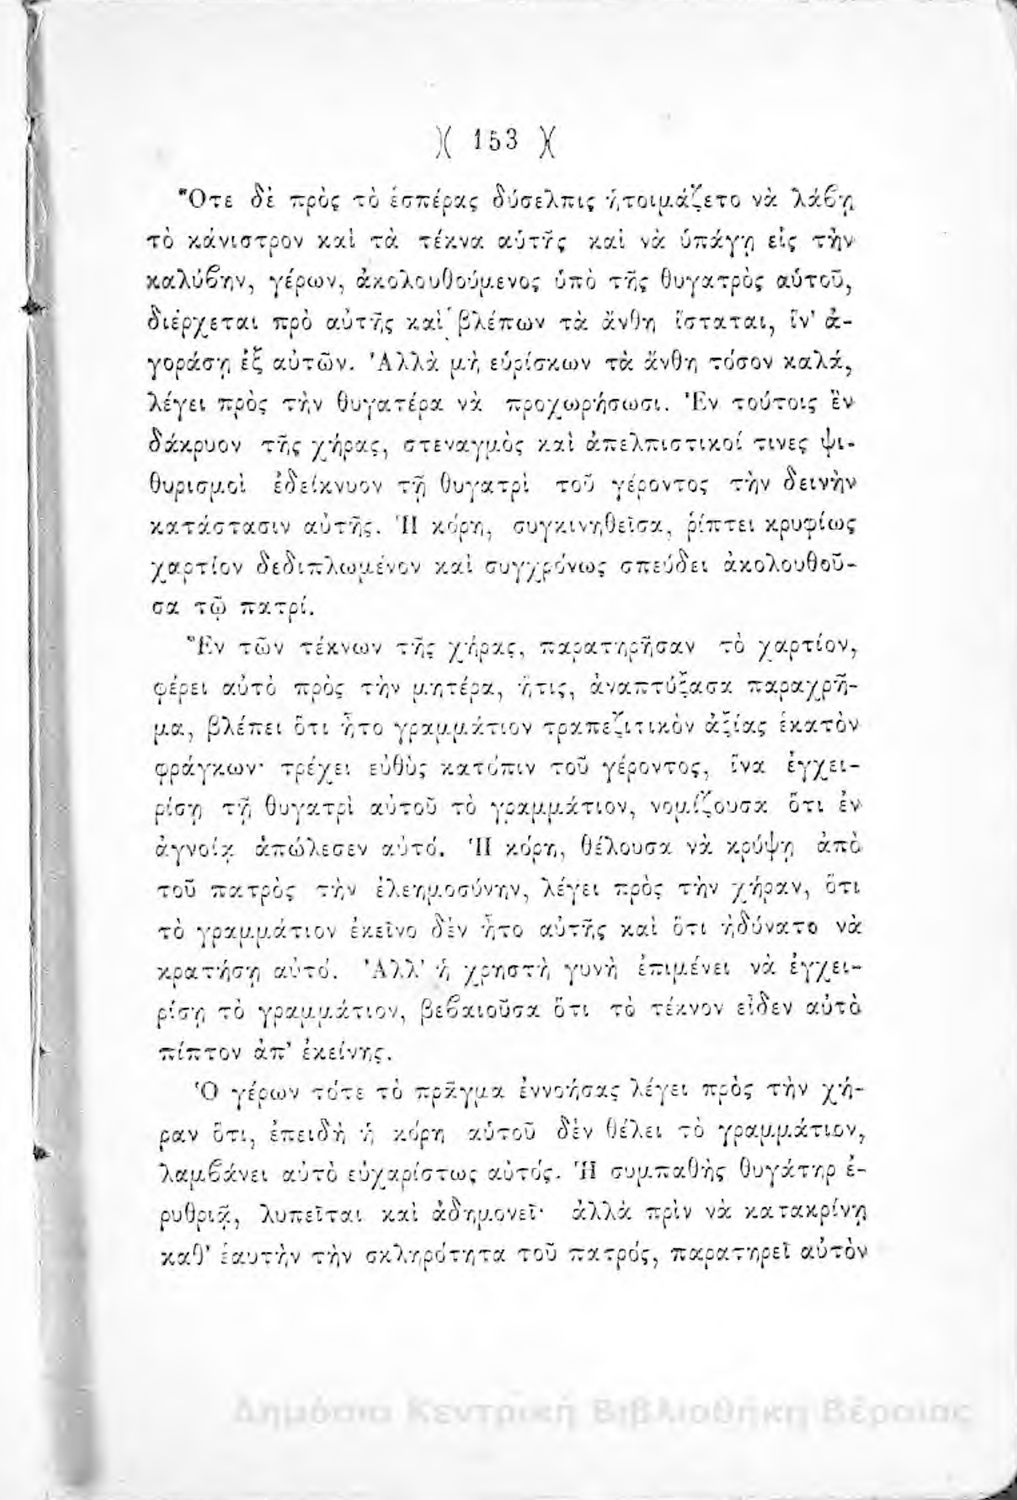 )( 153 )(
Ὅτε δὲ πρὸς τὸ ἑσπέρας δύσελπις ἡτοιμάζετο νὰ λάβῃ
τὸ κάνιστρον καὶ τὰ τέκνα αὑτῆς καὶ νὰ ὑπάγῃ εἰς τὴν
καλύβην, γέρων, ἀκολουθούμενος ὑπὸ τῆς θυγατρὸς αὑτοῦ,
διέρχεται πρὸ αὐτῆς καὶ βλέπων τὰ ἄνθη ἵσταται, ἵν' ἀ-
γοράσῃ ἐξ αὐτῶν. Ἀλλὰ μὴ εὑρίσκων τὰ ἄνθη τόσον καλά,
λέγει πρὸς τὴν θυγατέρα νὰ προχωρήσωσι. Ἐν τούτοις ἓν
δάκρυον τῆς χήρας, στεναγμὸς καὶ ἀπελπιστικοί τινες ψι-
θυρισμοὶ ἐδείκνυον τῇ θυγατρὶ τοῦ γέροντος τὴν δεινὴν
κατάστασιν αὐτῆς. Ἡ κόρη, συγκινηθεῖσα, ῥίπτει κρυφίως
χαρτίον δεδιπλωμένον καὶ συγχρόνως σπεύδει ἀκολουθοῦ-
σα τῷ πατρί.
Ἓν τῶν τέκνων τῆς χήρας, παρατηρῆσαν τὸ χαρτίον,
φέρει αὐτὸ πρὸς τὴν μητέρα, ἥτις, ἀναπτύξασα παραχρῆ-
μα, βλέπει ὅτι ἦτο γραμμάτιον τραπεζιτικὸν ἀξίας ἑκατὸν
φράγκων· τρέχει εὐθὺς κατόπιν τοῦ γέροντος, ἵνα ἐγχει-
ρίσῃ τῇ θυγατρὶ αὐτοῦ τὸ γραμμάτιον, νομίζουσα ὅτι ἐν
ἀγνοίᾳ ἀπώλεσεν αὐτό. Ἡ κόρη, θέλουσα νὰ κρύψῃ ἀπὸ
τοῦ πατρὸς τὴν ἐλεημοσύνην, λέγει πρὸς τὴν χήραν, ὅτι
τὸ γραμμάτιον ἐκεῖνο δὲν ἦτο αὐτῆς καὶ ὅτι ἠδύνατο νὰ
κρατήσῃ αὐτό. Ἀλλ' ἡ χρηστὴ γυνὴ ἐπιμένει νὰ ἐγχει-
ρίσῃ τὸ γραμμάτιον, βεβαιοῦσα ὅτι τὸ τέκνον εἶδεν αὐτὸ
πίπτον ἀπ' ἐκείνης.
Ὁ γέρων τότε τὸ πρᾶγμα ἐννοήσας λέγει πρὸς τὴν χή-
ραν ὅτι, ἐπειδὴ ἡ κόρη αὑτοῦ δὲν θέλει τὸ γραμμάτιον,
λαμβάνει αὐτὸ εὐχαρίστως αὐτός. Ἡ συμπαθὴς θυγάτηρ ἐ-
ρυθριᾷ, λυπεῖται καὶ ἀδημονεῖ· ἀλλὰ πρὶν νὰ κατακρίνῃ
καθ' ἑαυτὴν τὴν σκληρότητα τοῦ πατρός, παρατηρεῖ αὐτὸν
Δημόσια Κεντρική Βιβλιοθήκη Βέροιας